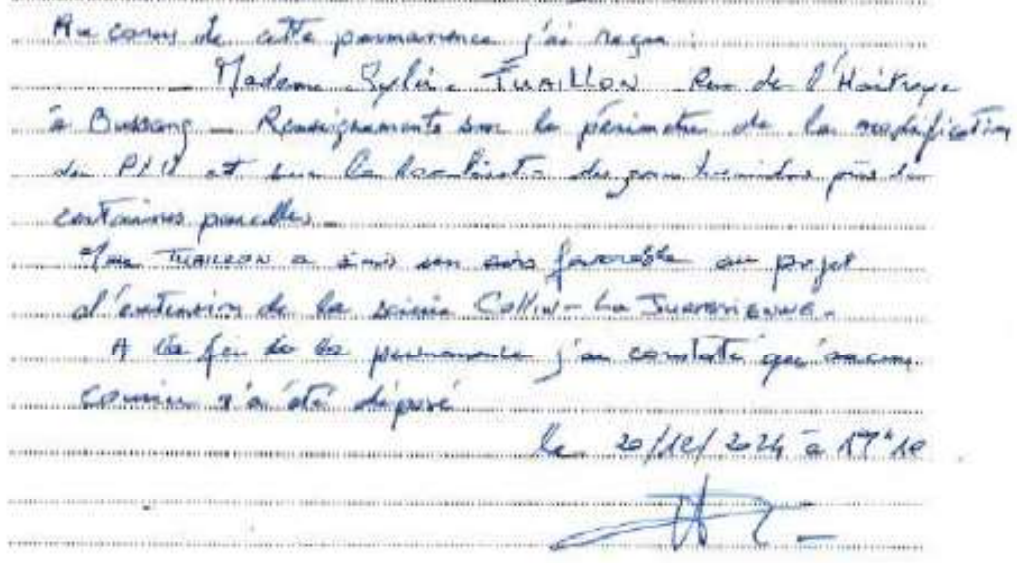 Au cours de cette permanence j'ai reçu :
– Madame Sylvie TUAILLON Rue de l'Hait
à Bussang – Renseignements sur le périmètre de la modification
du PLU et sur la localisation des zones humides près de
certaines parcelles –
Mme TUAILLON a émis un avis favorable au projet
d'extension de la scierie Collin – La
A la fin de la permanence j'ai constaté qu'aucun
courrier n'a été déposé
le 20/12/2024 à 17h10